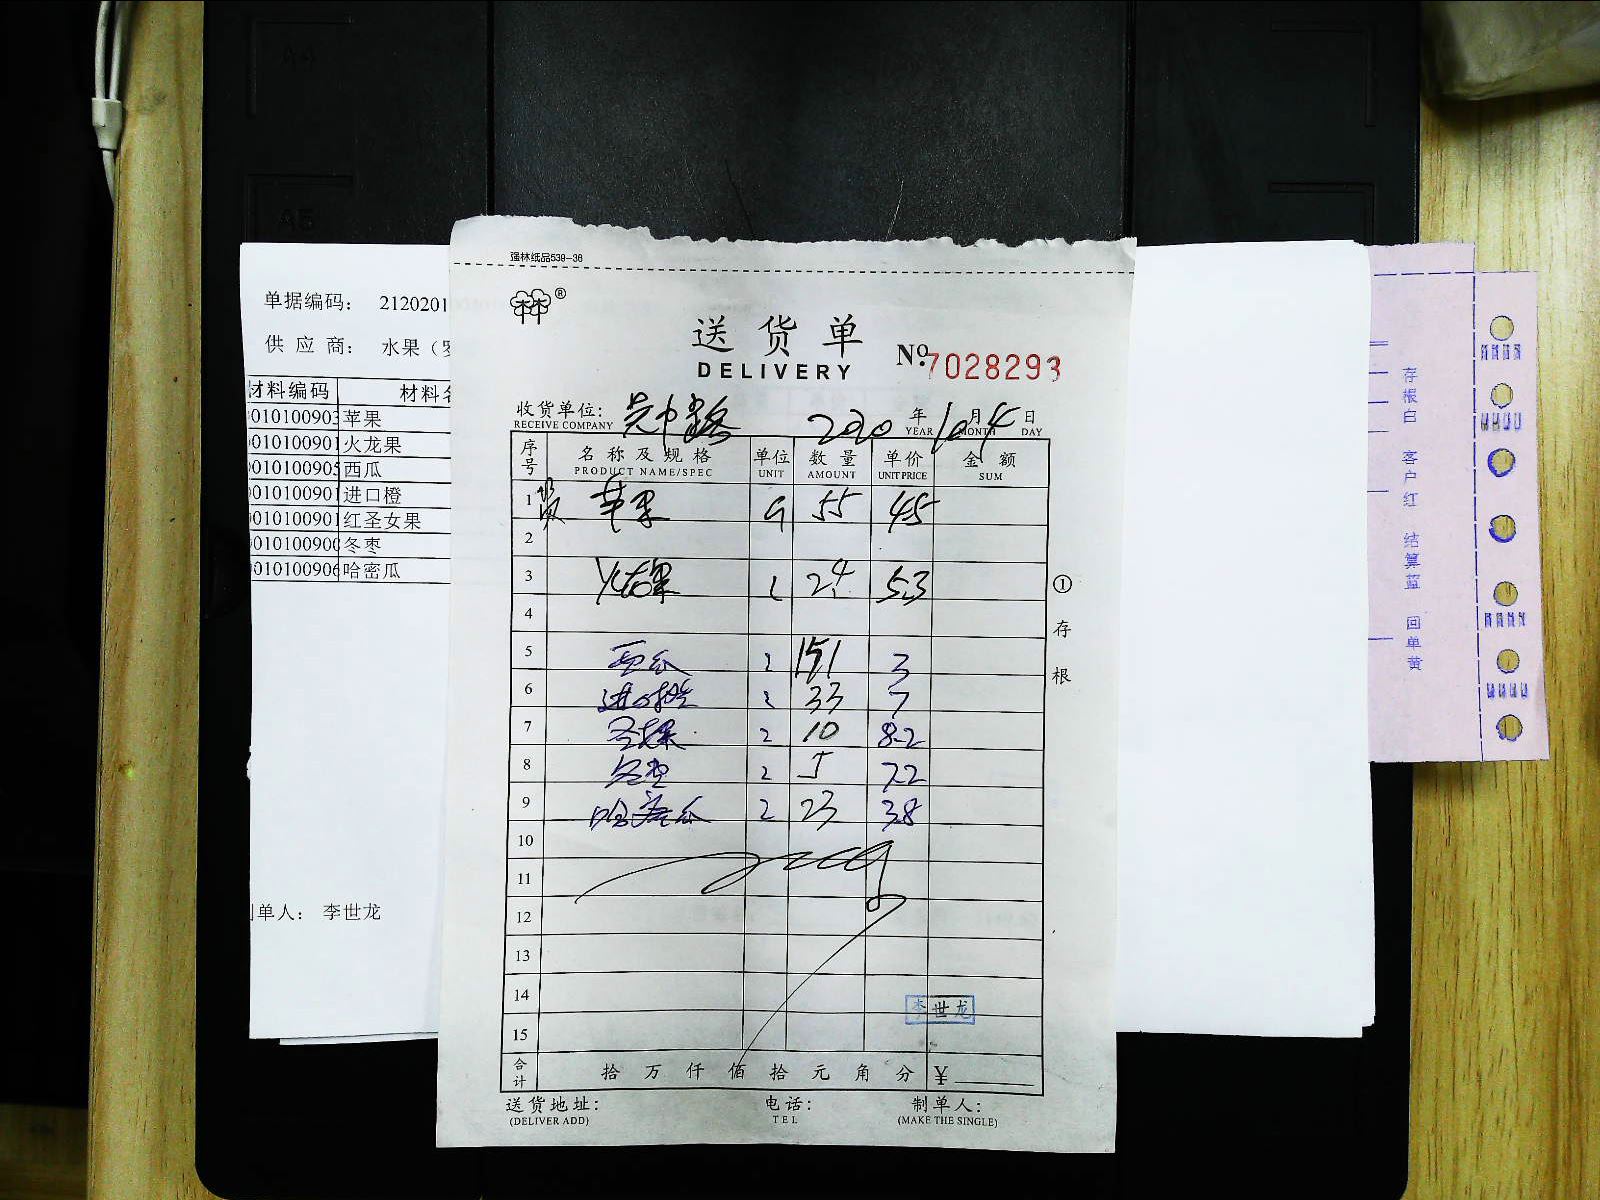 A4
A5
强林纸品539-36
单据编码: 2120201
供应商: 水果(
材料编码 材料名
010100903 苹果
010100901 火龙果
010100905 西瓜
010100901 进口橙
010100901 红圣女果
010100900 冬枣
010100906 哈密瓜
制单人: 李世龙
®
送货单
DELIVERY
No. 7028293
收货单位: 吴中路 2020 年 10 月 4 日
RECEIVE COMPANY YEAR MONTH DAY
序号 名称及规格 单位 数量 单价 金额
PRODUCT NAME/SPEC UNIT AMOUNT UNIT PRICE SUM
1 苹果 55 4.5
2
3 火龙果 24 5.3
4
5 西瓜 151 3
6 进口橙 33 7
7 圣女果 10 8.2
8 冬枣 5 7.2
9 哈密瓜 23 3.8
10
11
12
13
14
15
李世龙
合计 拾 万 仟 佰 拾 元 角 分 ¥
送货地址: 电话: 制单人:
(DELIVER ADD) TEL (MAKE THE SINGLE)
①存根
存根白 客户红 结算蓝 回单黄